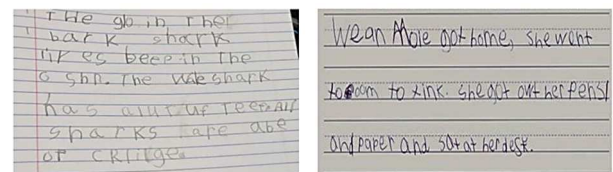 THe gobin ther
bark shark
lives beep in the
o shn. The wale shark
has alut uf teeth All
sharks are abe
of crtilge.
Wean Mole got home, she went
to room to xink. She got out her pensl
and paper and sat at her desk.